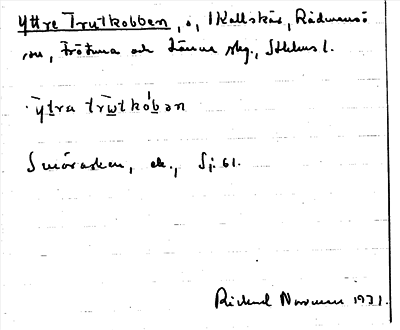 Yttre Trutkobben, ö, i Kallskär, Rådmansö
sn, Frötuna och Länna skg., Sthlms l.
ytra trutkobən
Smörasken, ek., Sj. 61.
Rickard 1931.